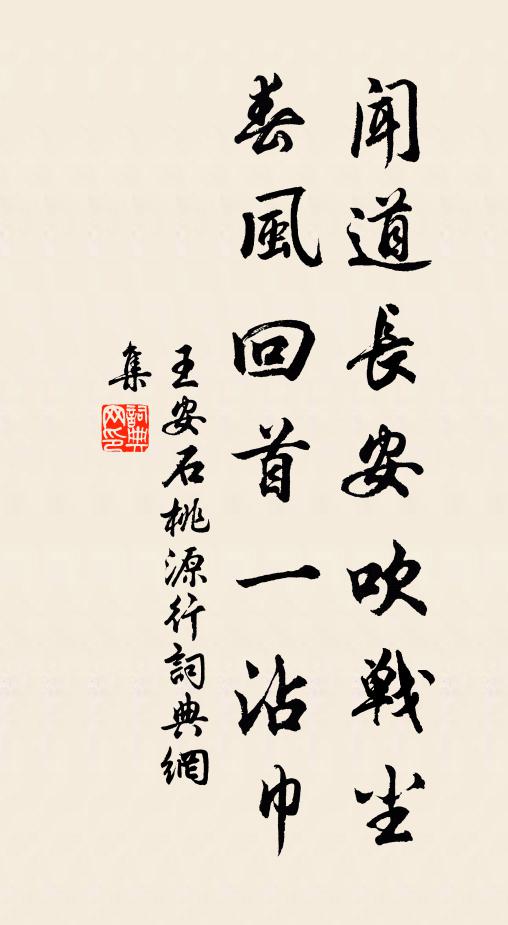 闻道長安吹戦尘
春風回首一沾巾
王安石桃源行詞典網
集
詞典
网印